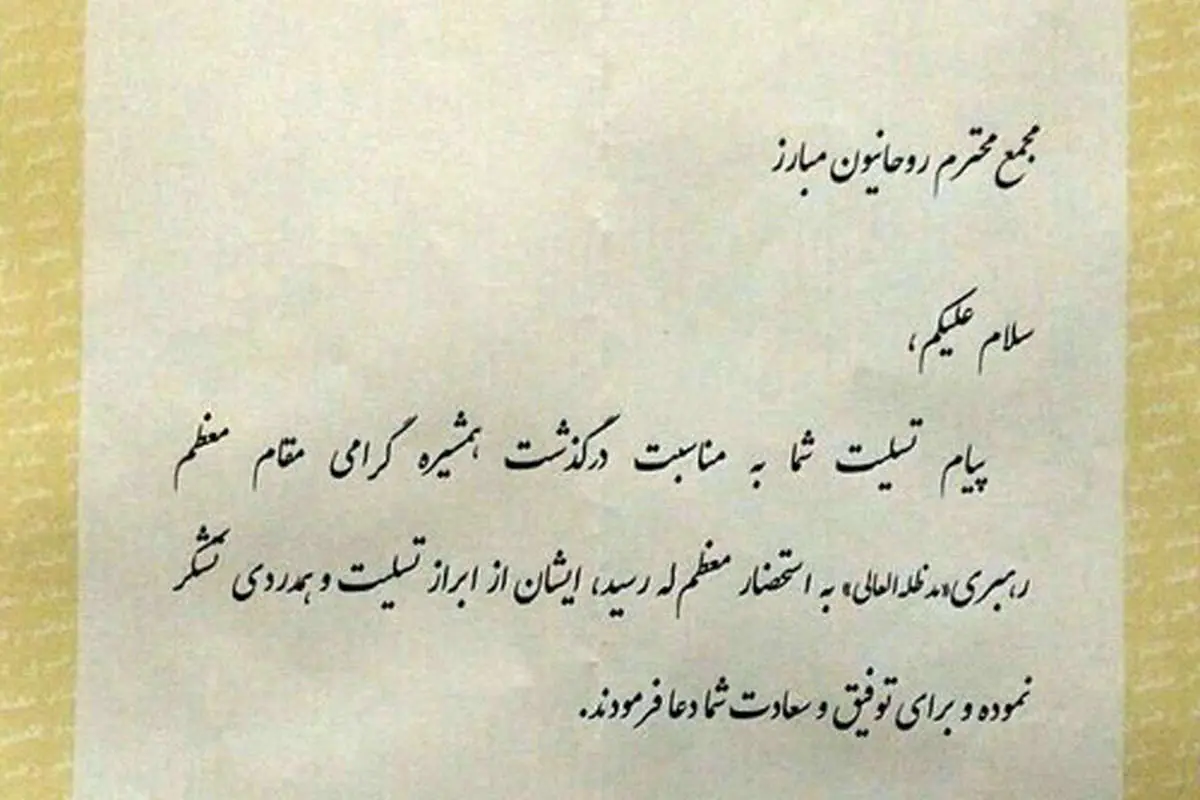 مجمع محترم روحانیون مبارز
سلام علیکم،
پیام تسلیت شما به مناسبت درگذشت همشیره گرامی مقام معظم
رهبری«مدظله‌العالی» به استحضار معظم‌له رسید، ایشان از ابراز تسلیت و همدردی تشکر
نموده و برای توفیق و سعادت شما دعا فرمودند.